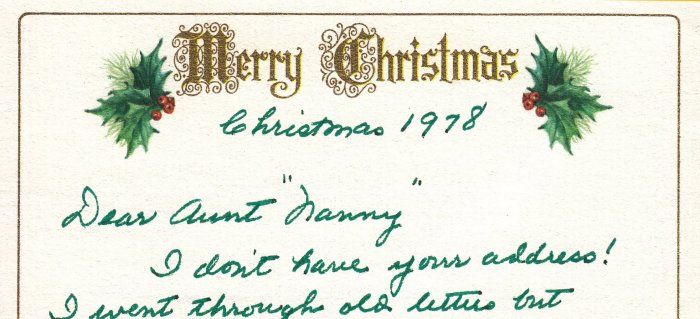 Merry Christmas
Christmas 1978
Dear Aunt "Nanny"
I don't have your address!
I went through old letters but